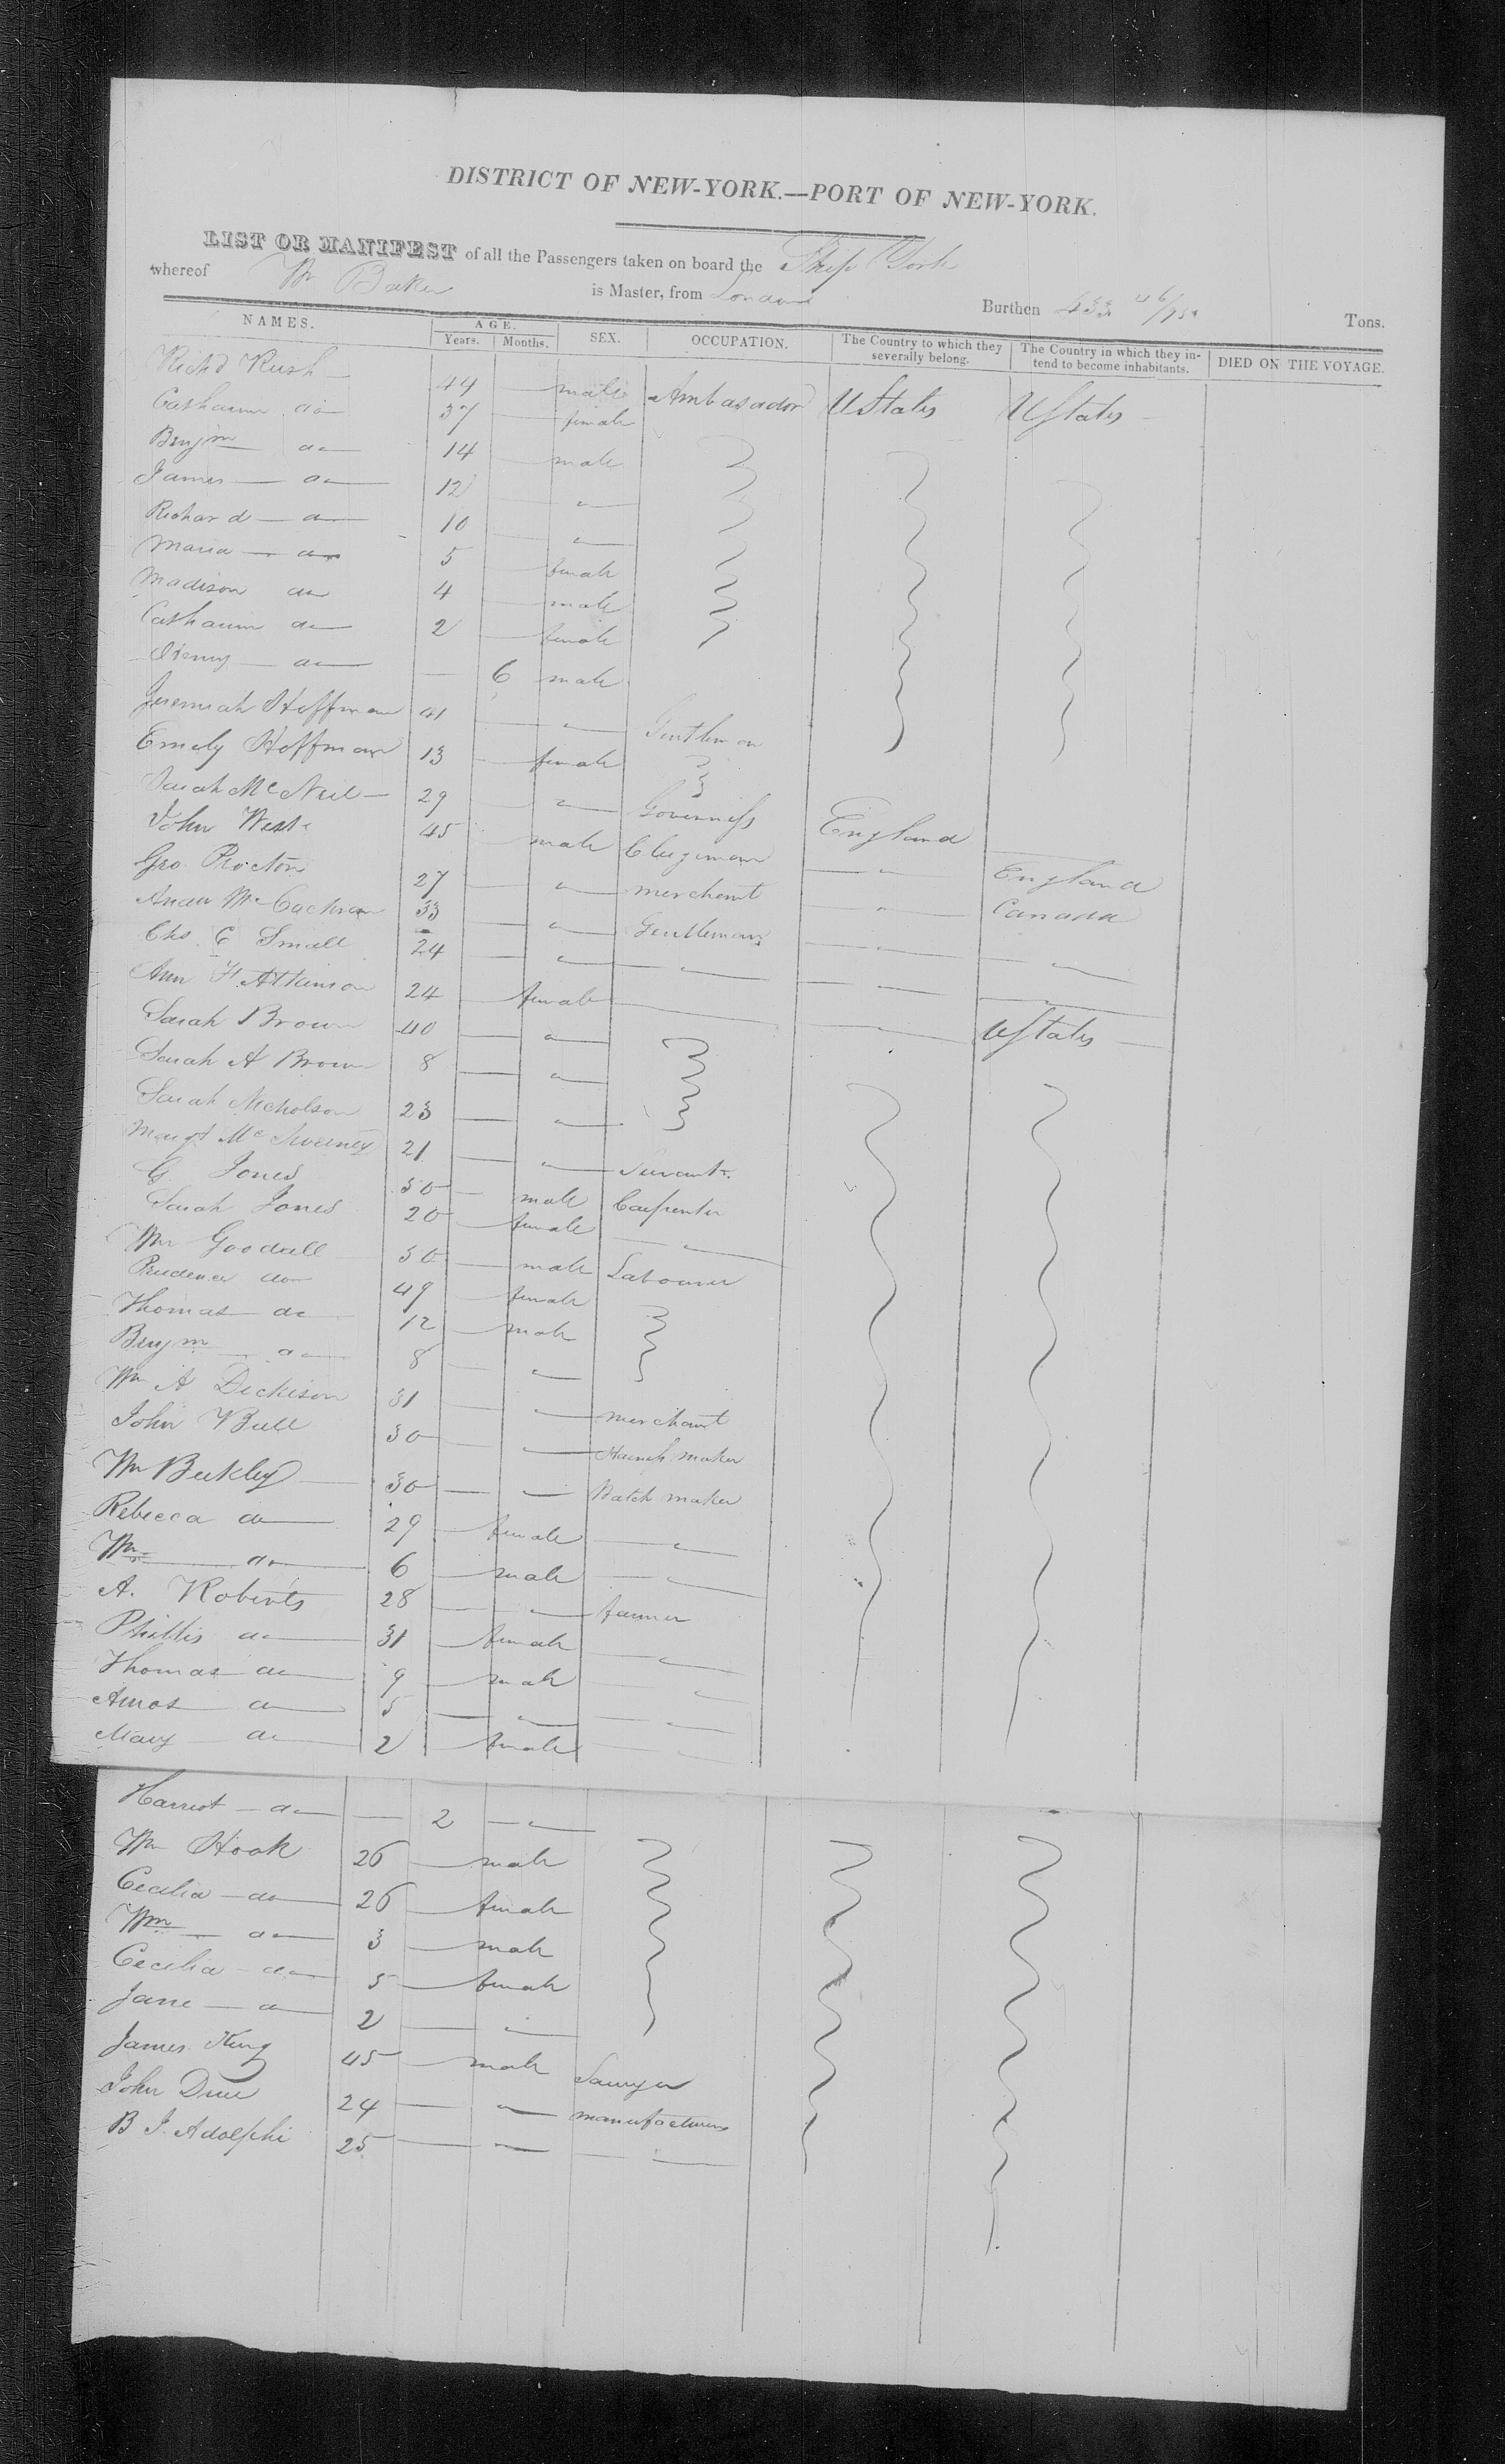 DISTRICT OF NEW-YORK.—PORT OF NEW-YORK.
LIST OR MANIFEST of all the Passengers taken on board the Ship York
whereof Wm Baker is Master, from London Burthen 433 46/95 Tons.
NAMES. AGE. Years. Months. SEX. OCCUPATION. The Country to which they severally belong. The Country in which they intend to become inhabitants. DIED ON THE VOYAGE.
Richd Rush 44 male Ambasador UStates UStates
Catharine do 37 female
Benjm do 14 male
James do 12 "
Richard do 10 "
Maria do 5 female
Madison do 4 male
Catharine do 2 female
Henry do 6 male
Jeremiah Hoffman 41 " Gentleman
Emely Hoffman 13 female
Sarah McNeil 29 " Governess England
John West 45 male Clergiman " England
Geo. Procter 27 " merchant " Canada
Andw McCachran 33 " Gentleman " "
Chs. C Small 24 " " "
Ann F. Atkinson 24 female " UStates
Sarah Brown 40 "
Sarah A Brown 8 "
Sarah Nicholson 23 "
Margt McSweeney 21 " Servant
G. Jones 30 male Carpenter
Sarah Jones 20 female "
Wm Goodall 50 male Labourer
Prudence do 49 female
Thomas do 12 male
Benjm do 8 "
Wm A Dickison 31 " merchant
John Bull 30 " maker
Wm Beckley 30 " Watch maker
Rebecca do 29 female "
Wm do 6 male "
A. Roberts 28 " farmer
Phillis do 31 female "
Thomas do 9 male "
Amos do 5 " "
Mary do 2 female "
Harriot do 2 "
Wm Hook 26 male
Cecilia do 26 female
Wm do 3 male
Cecilia do 5 female
Jane do 2 "
James King 45 male Sawyer
John 24 " manufacturer
B J. Adolphi 25 " "